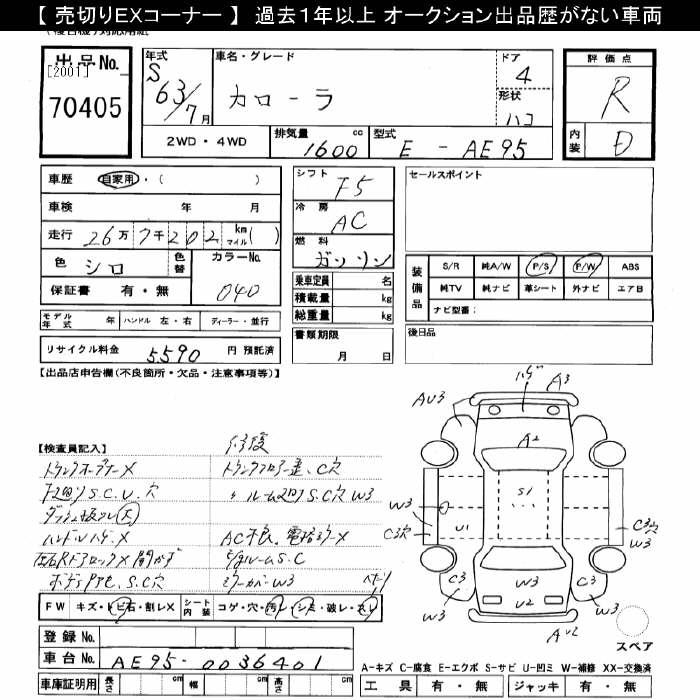 【 売切りEXコーナー 】 過去1年以上 オークション出品歴がない車両
出品No.
[2001]
70405
年式
S
63/7月
車名・グレード
カローラ
ドア
4
形状
ハコ
評価点
R
内装
D
2WD・4WD
排気量
1600 cc
型式
E - AE95
車歴 自家用・( )
車検 年 月
走行 26万7千202 km マイル( )
色 シロ
色替
カラーNo.
040
保証書 有・無
モデル年式 年 ハンドル 左・右 ディーラー・並行
リサイクル料金 5590 円 預託済
シフト
F5
冷房
AC
燃料
ガソリン
乗車定員 名
積載量 kg
総重量 kg
書類期限
月 日
セールスポイント
装備品
S/R 純A/W P/S P/W ABS
純TV 純ナビ 革シート 外ナビ エアB
ナビ型番:
後日品
【出品店申告欄(不良箇所・欠品・注意事項等)】
【検査員記入】
修復
トランクオープナーX
トランクフロアー歪、C穴
下廻りS.C.U.穴
〃 ルーム廻りS.C穴 W3
ハンドルハゲX
AC不良、電格ミラーX
左右RドアロックX
S.C
S.C穴
ミラーカバーW3
FW キズ・トビ石・割レX シート内装 コゲ・穴・汚レ・シミ・破レ・スレ
登録No.
車台No. AE95-0036401
車庫証明用 長さ cm 幅 cm 高さ cm
ハゲ
A3
AU3
A2
S1
W3
C3穴
U1
C3穴
W3
C3
W3
W3
U2
C3
W3
AU2
スペア
A-キズ C-腐食 E-エクボ S-サビ U-凹ミ W-補修 XX-交換済
工具 有・無 ジャッキ 有・無